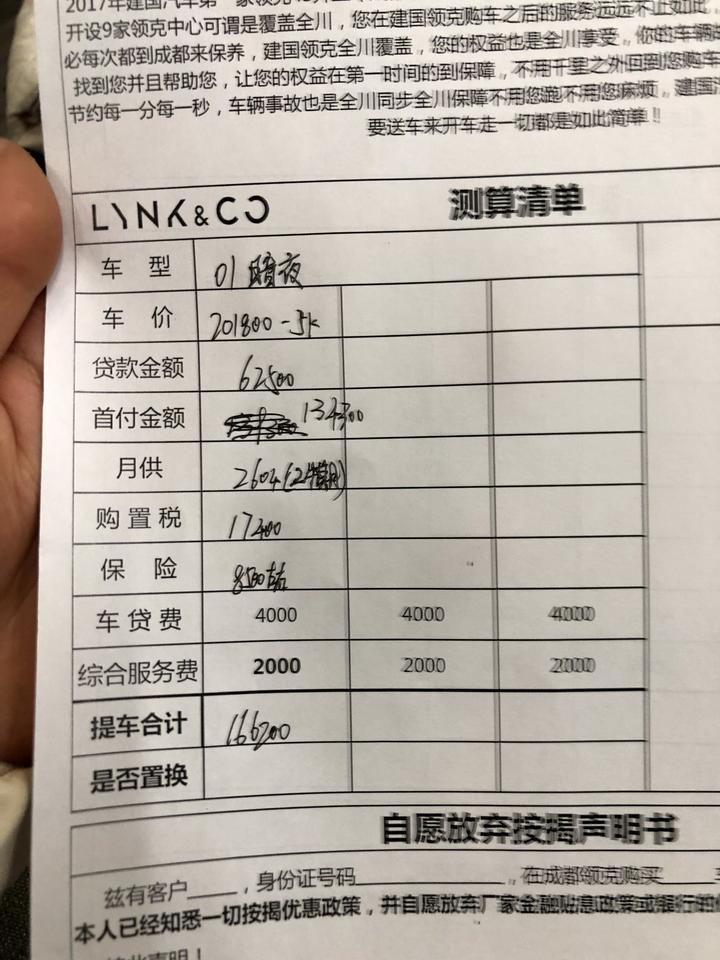 2017年建国汽车第一家领克
开设9家领克中心可谓是覆盖全川，您在建国领克购车之后的服务远远不止如此，
必每次都到成都来保养，建国领克全川覆盖，您的权益也是全川享受，你的车辆
找到您并且帮助您，让您的权益在第一时间的到保障，不用千里之外回到您购车
节约每一分每一秒，车辆事故也是全川同步全川保障不用您跑不用您麻烦，建国
要送车来开车走一切都是如此简单！
LYNK&CO 测算清单
车 型 01 暗夜
车 价 201800-5k
贷款金额 62500
首付金额 134300
月供 2604(24期)
购置税 17400
保 险 8500左右
车贷费 4000 4000 4000
综合服务费 2000 2000 2000
提车合计 166200
是否置换
自愿放弃按揭声明书
兹有客户____，身份证号码____________，在成都领克购买____
本人已经知悉一切按揭优惠政策，并自愿放弃厂家金融贴息政策或银行的
特此声明！